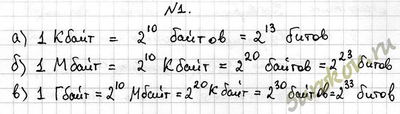 №1.
а) 1 Кбайт = 2¹⁰ байтов = 2¹³ битов
б) 1 Мбайт = 2¹⁰ Кбайт = 2²⁰ байтов = 2²³ битов
в) 1 Гбайт = 2¹⁰ Мбайт = 2²⁰ Кбайт = 2³⁰ байтов = 2³³ битов